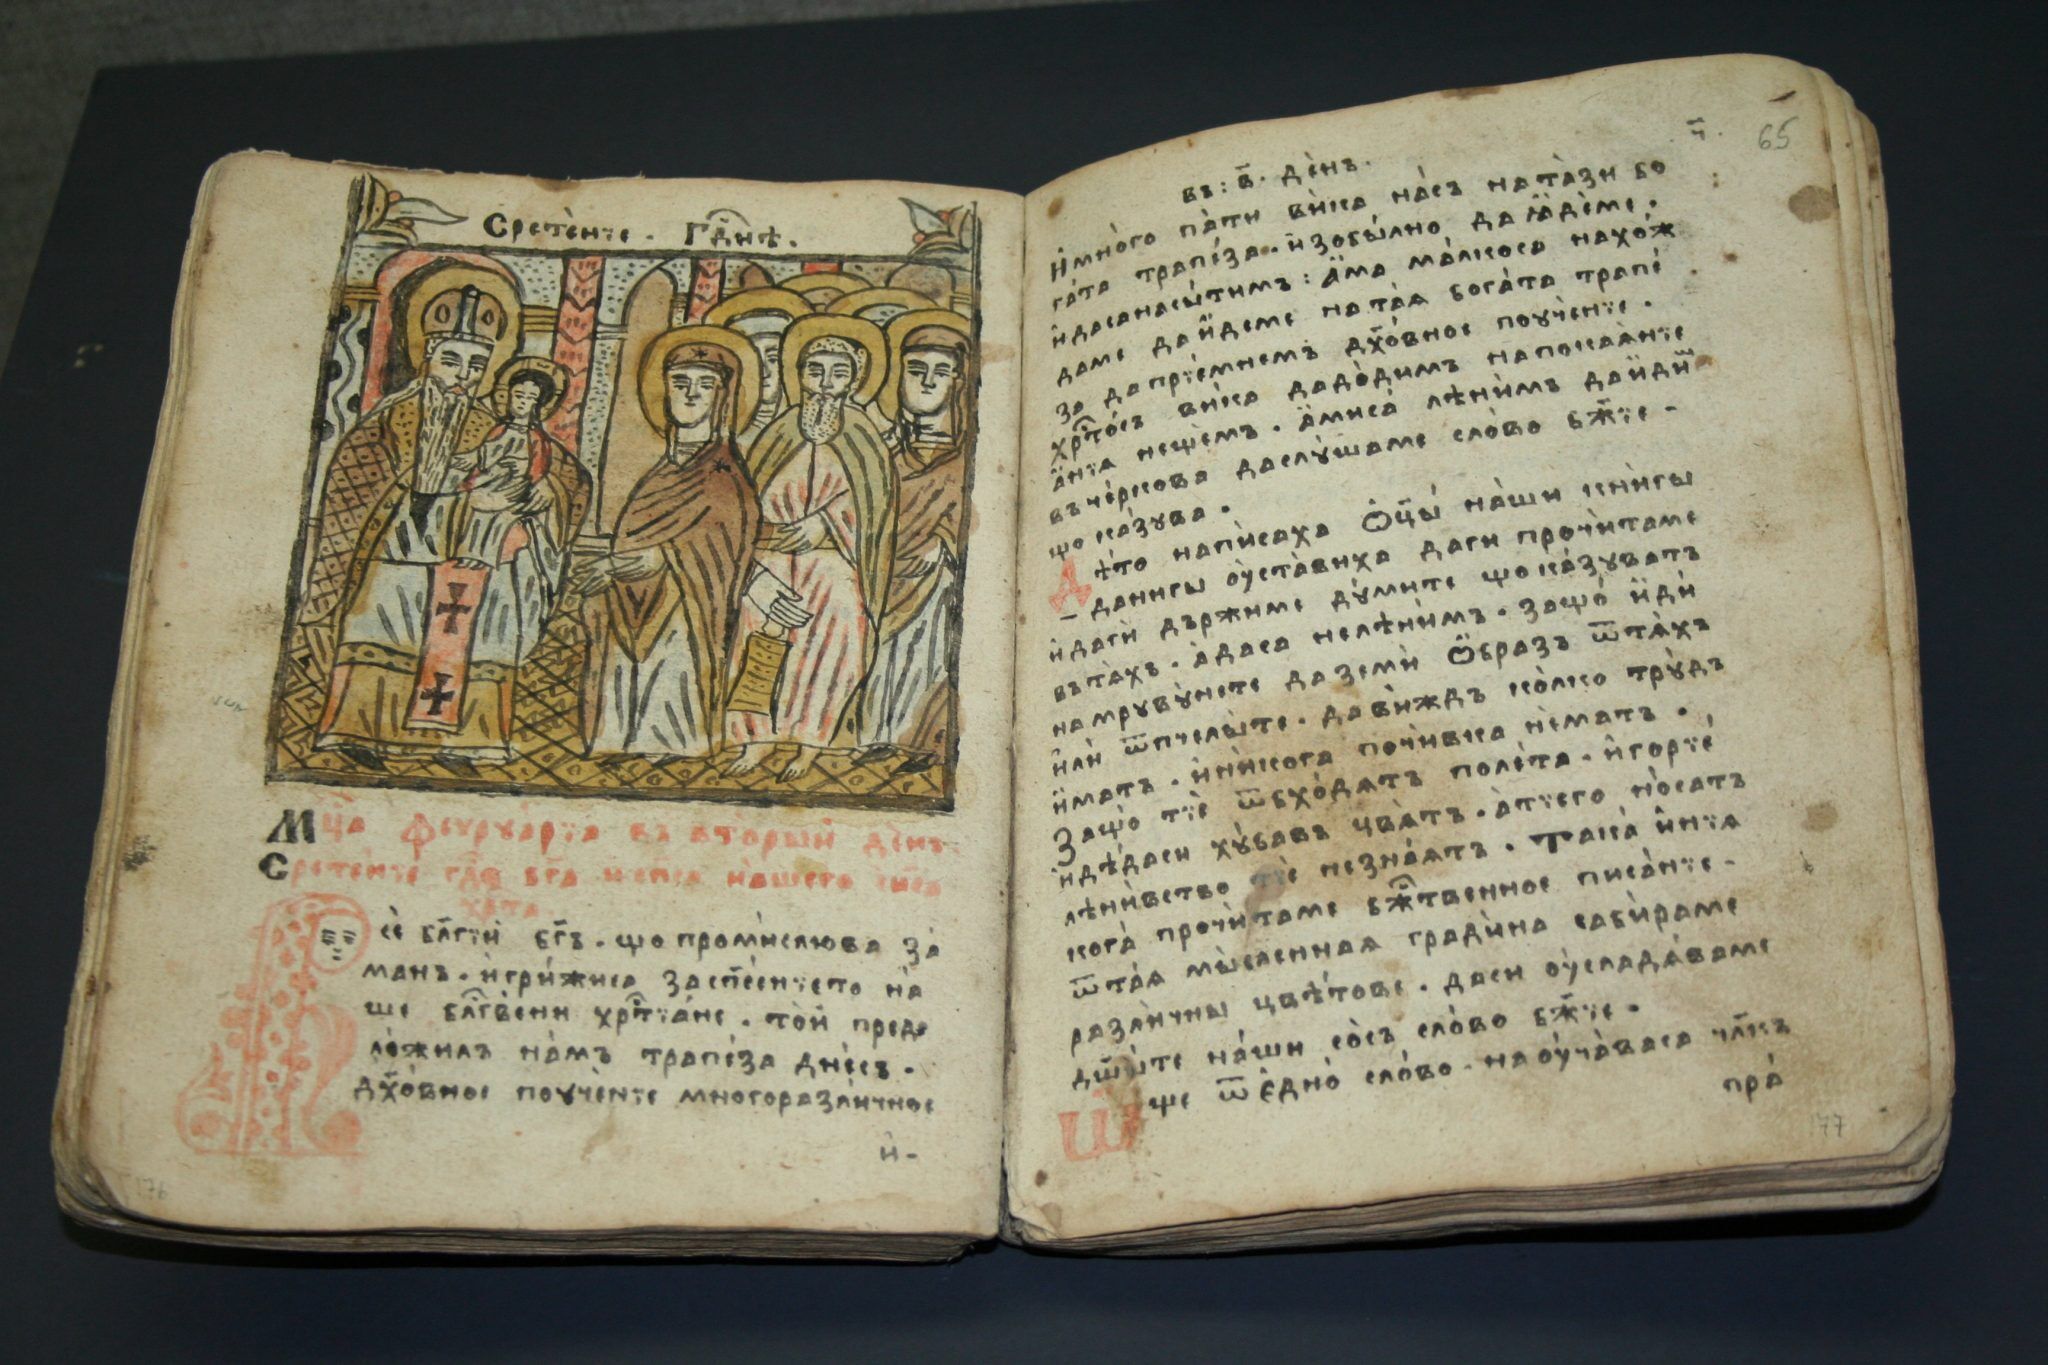 Сретенїе. Гднѣ.
Мца феурѹарїа въ вторый день
Сретенїе гда бга и спса нашего
хрта
се блгїй бгъ. що промислюва за
манъ. и грижиса за спсенїето на
ше блгвени хртїане. той пред
ложилъ намъ трапеза днесъ.
дховное поѹченїе многоразличное
и-
65
въ: в. день.
И много пати вика насъ на тази бо
гата трапеза. изобылно да ꙗдеме.
и даса насытимъ: ама малкоса нахож
даме да идеме на таѧ богата трапе
за да прїемнемъ дховное поѹченїе.
хртосъ вика дадодимъ на покаѧнїе
ѧнїѧ нещемъ. амиса лѣнимъ да иди
въ черкова да слѹшаме слово бжїе-
що казува.
Дѣто написаха ѿцы наши книгы
– да ни гы ѹставиха да ги прочитаме
и даги държиме дѹмите що казуватъ
въ тѧхъ. адаса нелѣнимъ. защо иди
на мрувѹнете да земи ѡбразъ ѿ тѧхъ
или ѿ пчелыте. да виждъ колко трѹдъ
иматъ. и никога почивка нематъ.
Защо тїе ѿбходѧтъ полета. и горїе
и дѣдаси хѹбавъ цвѧтъ. а птїего носатъ
лѣнивство тїе незнаѧтъ. Така и нїѧ
кога прочитаме бжтвенное писанїе-
ѿ таѧ мысленнаѧ градина сабираме
различны цвѣтове. даси ѹсладѧваме
дшыте наши сосъ слово бжїе.
Ѿще ѿ едно слово. на ѹчаваса члкъ
пра
177
176